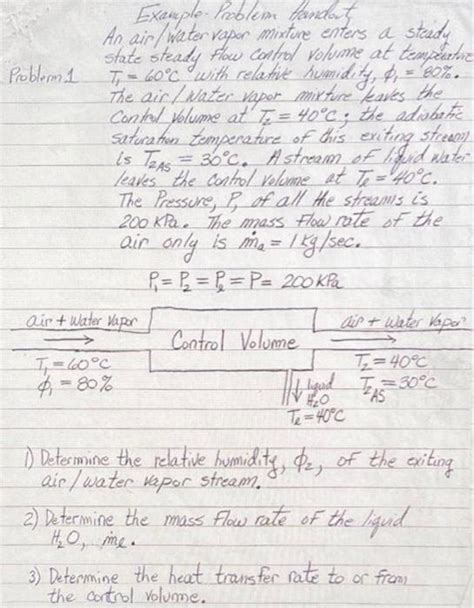 Example Problem Handout
An air/water vapor mixture enters a steady
state steady flow control volume at temperature
Problem 1 T₁ = 60°C with relative humidity, ϕ₁ = 80%.
The air/water vapor mixture leaves the
control volume at T₂ = 40°C; the adiabatic
saturation temperature of this exiting stream
is T₂AS = 30°C. A stream of liquid water
leaves the control volume at Tℓ = 40°C.
The Pressure, P, of all the streams is
200 kPa. The mass flow rate of the
air only is ṁa = 1 kg/sec.
P₁ = P₂ = Pℓ = P = 200 kPa
air + water vapor
Control Volume
air + water vapor
T₁ = 60°C
ϕ₁ = 80%
T₂ = 40°C
T₂AS = 30°C
liquid
H₂O
Tℓ = 40°C
1) Determine the relative humidity, ϕ₂, of the exiting
air/water vapor stream.
2) Determine the mass flow rate of the liquid
H₂O, ṁℓ.
3) Determine the heat transfer rate to or from
the control volume.